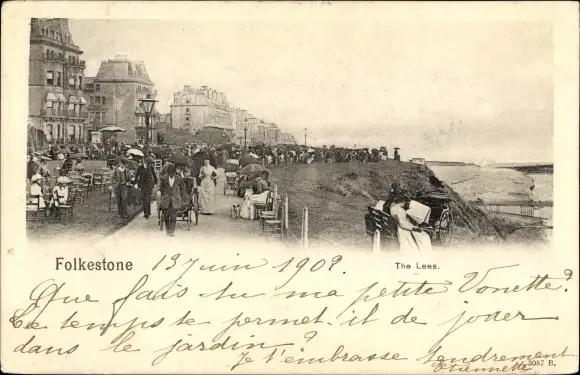 Folkestone 13 juin 1902.
The Lees.
Que fais-tu ma petite Vonette?
Le temps te permet-il de joder
dans le jardin? Je t'embrasse tendrement
Etiennette
3087 B.